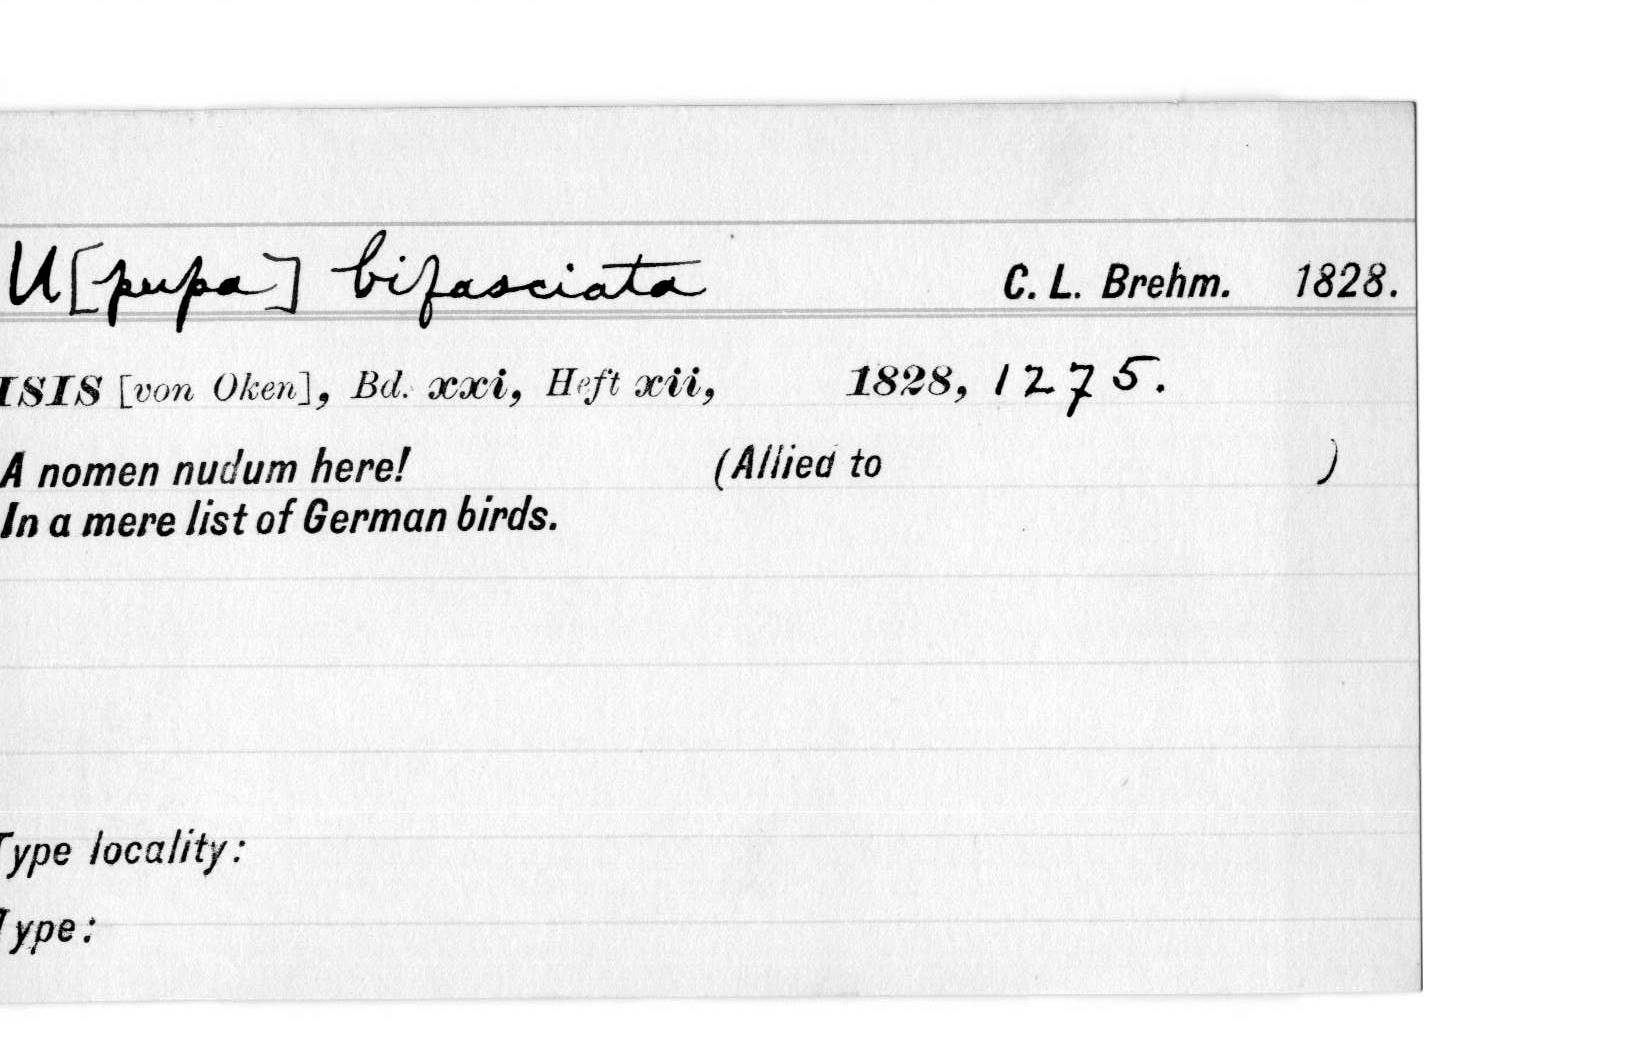 U[pupa] bifasciata C. L. Brehm. 1828.
ISIS [von Oken], Bd. xxi, Heft xii, 1828, 1275.
A nomen nudum here! (Allied to )
In a mere list of German birds.
Type locality:
Type: